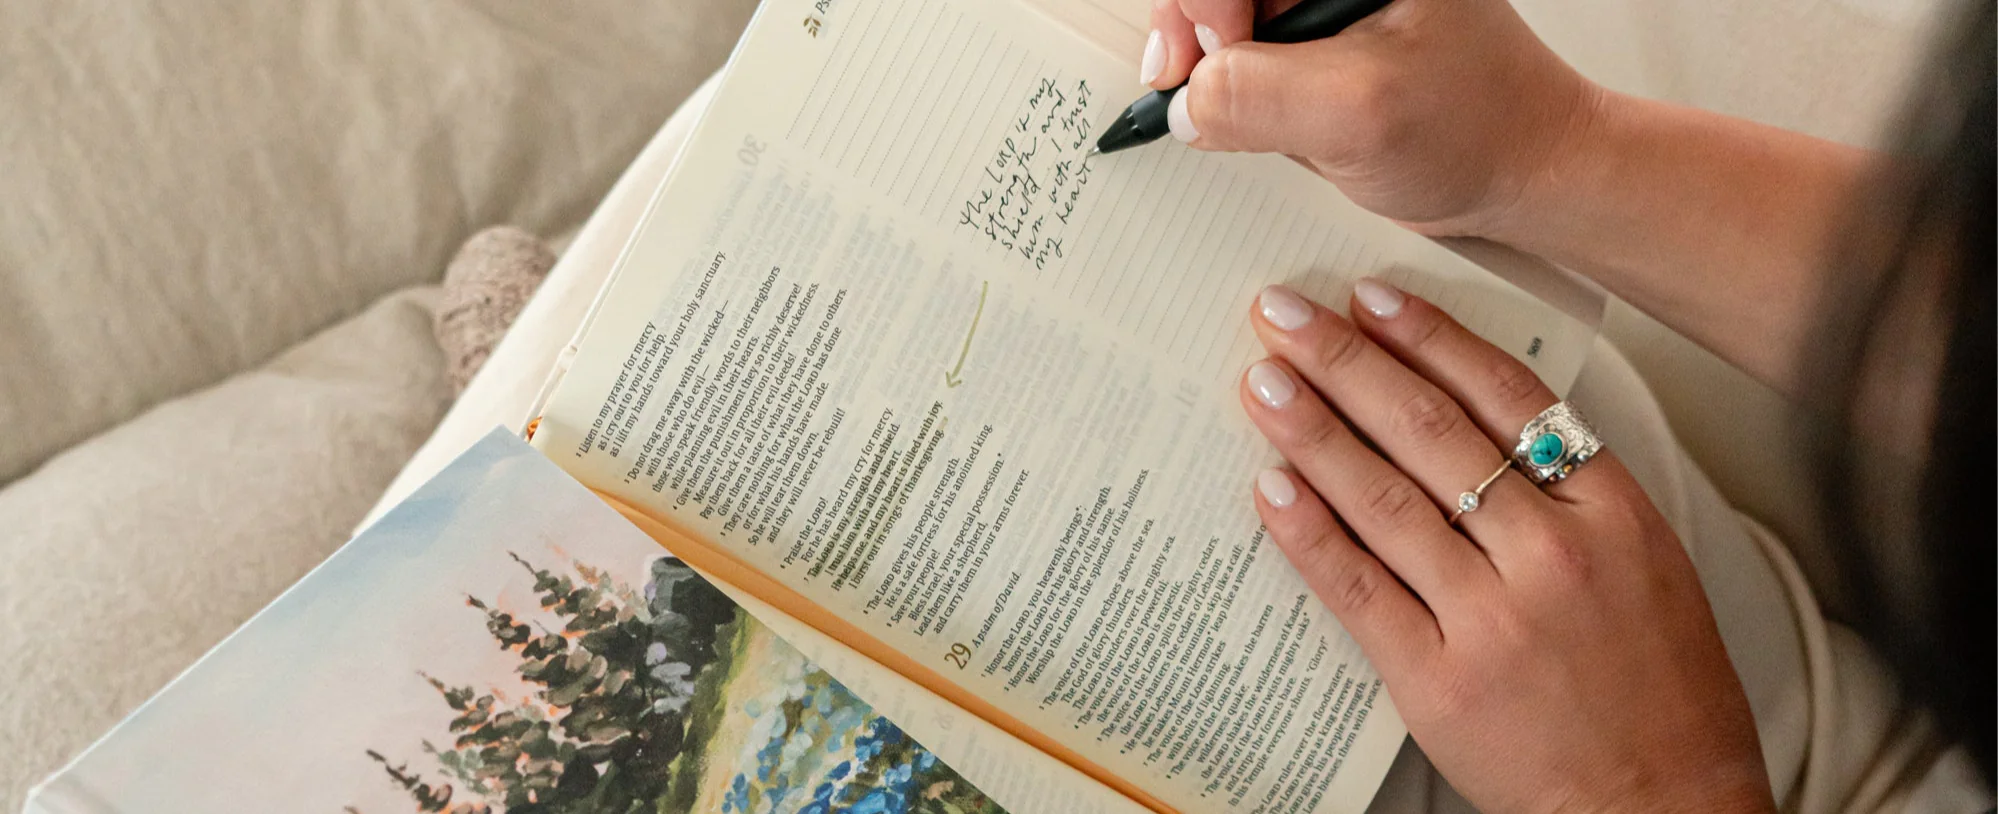 Ps
the LORD is my
strength and
shield. I trust
him with all
my heart
² Listen to my prayer for mercy
as I cry out to you for help,
as I lift my hands toward your holy sanctuary.
³ Do not drag me away with the wicked—
with those who do evil—
those who speak friendly words to their neighbors
while planning evil in their hearts.
⁴ Give them the punishment they so richly deserve!
Measure it out in proportion to their wickedness.
Pay them back for all their evil deeds!
Give them a taste of what they have done to others.
⁵ They care nothing for what the LORD has done
or for what his hands have made.
So he will tear them down,
and they will never be rebuilt!
⁶ Praise the LORD!
For he has heard my cry for mercy.
⁷ The LORD is my strength and shield.
I trust him with all my heart.
He helps me, and my heart is filled with joy.
I burst out in songs of thanksgiving.
⁸ The LORD gives his people strength.
He is a safe fortress for his anointed king.
⁹ Save your people!
Bless Israel, your special possession.*
Lead them like a shepherd,
and carry them in your arms forever.
29 A psalm of David.
¹ Honor the LORD, you heavenly beings*;
honor the LORD for his glory and strength.
² Honor the LORD for the glory of his name.
Worship the LORD in the splendor of his holiness.
³ The voice of the LORD echoes above the sea.
The God of glory thunders.
The LORD thunders over the mighty sea.
⁴ The voice of the LORD is powerful;
the voice of the LORD is majestic.
⁵ The voice of the LORD splits the mighty cedars;
the LORD shatters the cedars of Lebanon.
⁶ He makes Lebanon's mountains skip like a calf;
he makes Mount Hermon* leap like a young wild
⁷ The voice of the LORD strikes
with bolts of lightning.
⁸ The voice of the LORD makes the barren
wilderness quake;
the LORD shakes the wilderness of Kadesh.
⁹ The voice of the LORD twists mighty oaks*
and strips the forests bare.
In his Temple everyone shouts, "Glory!"
LORD rules over the floodwaters.
The LORD reigns as king forever.
LORD gives his people strength.
LORD blesses them with peace.